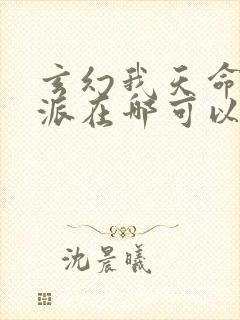 玄幻我天命
派在哪可以
沈晨曦